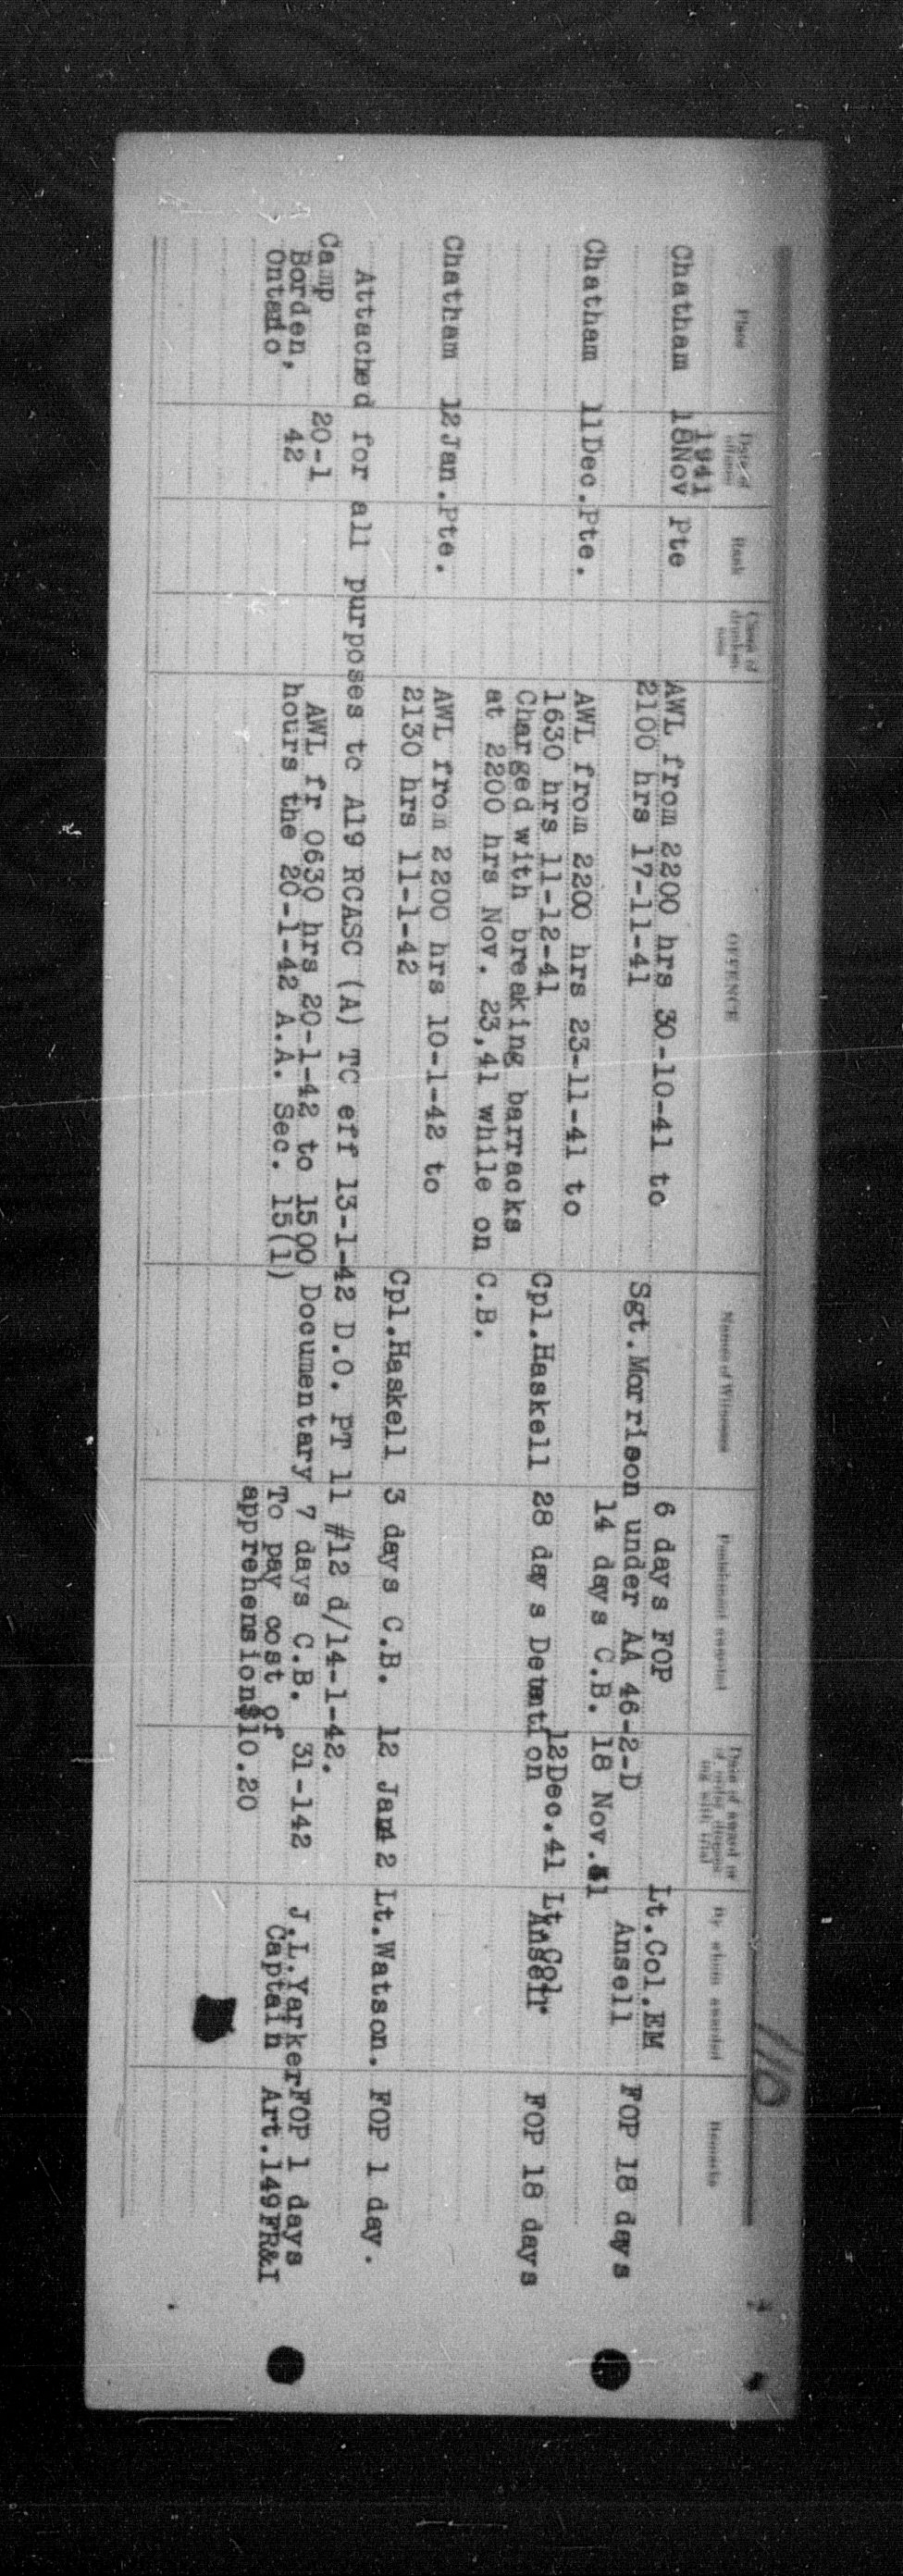 110
Place Date of offence Rank Cases of drunkenness OFFENCE Names of Witnesses Punishment awarded Date of award or of order dispensing with trial By whom awarded Remarks
1941
Chatham 18Nov Pte AWL from 2200 hrs 30-10-41 to 6 days FOP Lt.Col.EM
2100 hrs 17-11-41 Sgt.Morrison under AA 46-2-D Ansell FOP 18 days
14 days C.B. 18 Nov.41
Chatham 11Dec.Pte. AWL from 2200 hrs 23-11-41 to
1630 hrs 11-12-41 12Dec.41 Lt.Col.
Charged with breaking barracks Cpl.Haskell 28 days Detention Ansell FOP 18 days
at 2200 hrs Nov. 23,41 while on C.B.
Chatham 12Jan.Pte. AWL from 2200 hrs 10-1-42 to
2130 hrs 11-1-42 Cpl.Haskell 3 days C.B. 12 Jan42 Lt.Watson. FOP 1 day.
Attached for all purposes to A19 RCASC (A) TC eff 13-1-42 D.O. PT 11 #12 d/14-1-42.
Camp 20-1 AWL fr 0630 hrs 20-1-42 to 1500 Documentary 7 days C.B. 31-142 J.L.Yarker FOP 1 days
Borden, 42 hours the 20-1-42 A.A. Sec. 15(1) To pay cost of Captain Art.149FR&I
Ontario apprehension$10.20